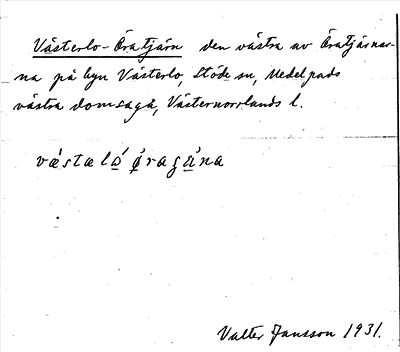 Västerlo-Öratjärn den västra av Öratjärnar-
na på byn Västerlo, Stöde sn, Medelpads
västra domsaga, Västernorrlands l.
vǽstæló̲ ǿ̲ragá̲na
Valter Jansson 1931.